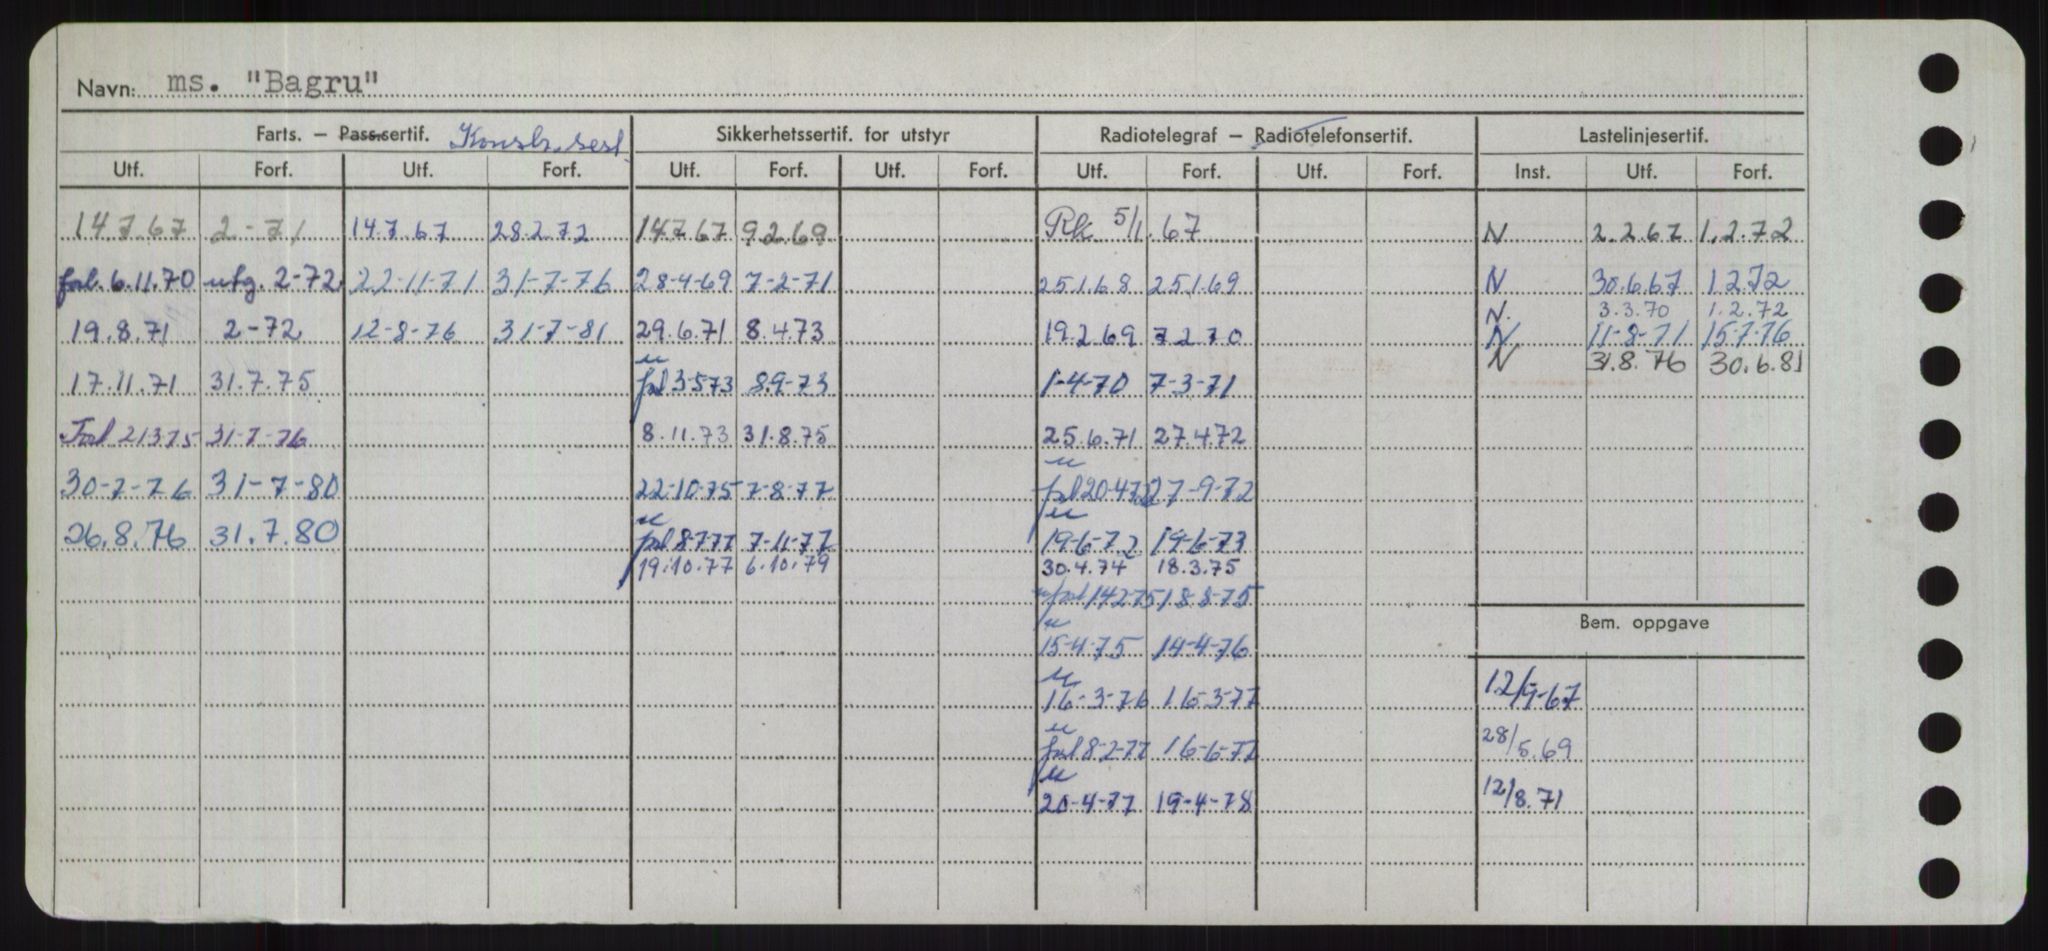 Navn: ms. "Bagru"
Farts. – Passsertif. Konstr. sert. Sikkerhetssertif. for utstyr Radiotelegraf – Radiotelefonsertif. Lastelinjesertif.
Utf. Forf. Utf. Forf. Utf. Forf. Utf. Forf. Utf. Forf. Utf. Forf. Inst. Utf. Forf.
14.7.67 2-71 14.7.67 28.2.72 14.7.67 9.2.69 Rk 5/1.67 N 2.2.67 1.2.72
forl. 6.11.70 utg. 2-72 22-11-71 31-7-76 28-4-69 7-2-71 25.1.68 25.1.69 N 30.6.67 1.2.72
N. 3.3.70 1.2.72
19.8.71 2-72 12-8-76 31-7-81 29.6.71 8.4.73 19.2.69 7.2.70 N 11-8-71 15-7-76
N 31.8.76 30.6.81
17.11.71 31.7.75 " forl 3-5-73 8-9-73 1-4-70 7-3-71
Forl 21375 31-7-76 8.11.73 31.8.75 25.6.71 27.4.72
30-7-76 31-7-80 22-10-75 7-8-77 " forl 20-4-72 27-9-72
26.8.76 31.7.80 " forl 8-7-77 7-11-77 " 19-6-72 19-6-73
19.10.77 6.10.79 30.4.74 18.3.75
" forl 14275 18-8-75
Bem. oppgave
" 15-4-75 14-4-76
" 16-3-76 16-3-77 12/9-67
" forl 8-2-77 16-6-77 28/5.69
" 20-4-77 19-4-78 12/8.71